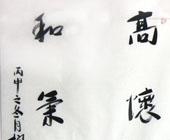 高懷
和氣
丙申之冬月